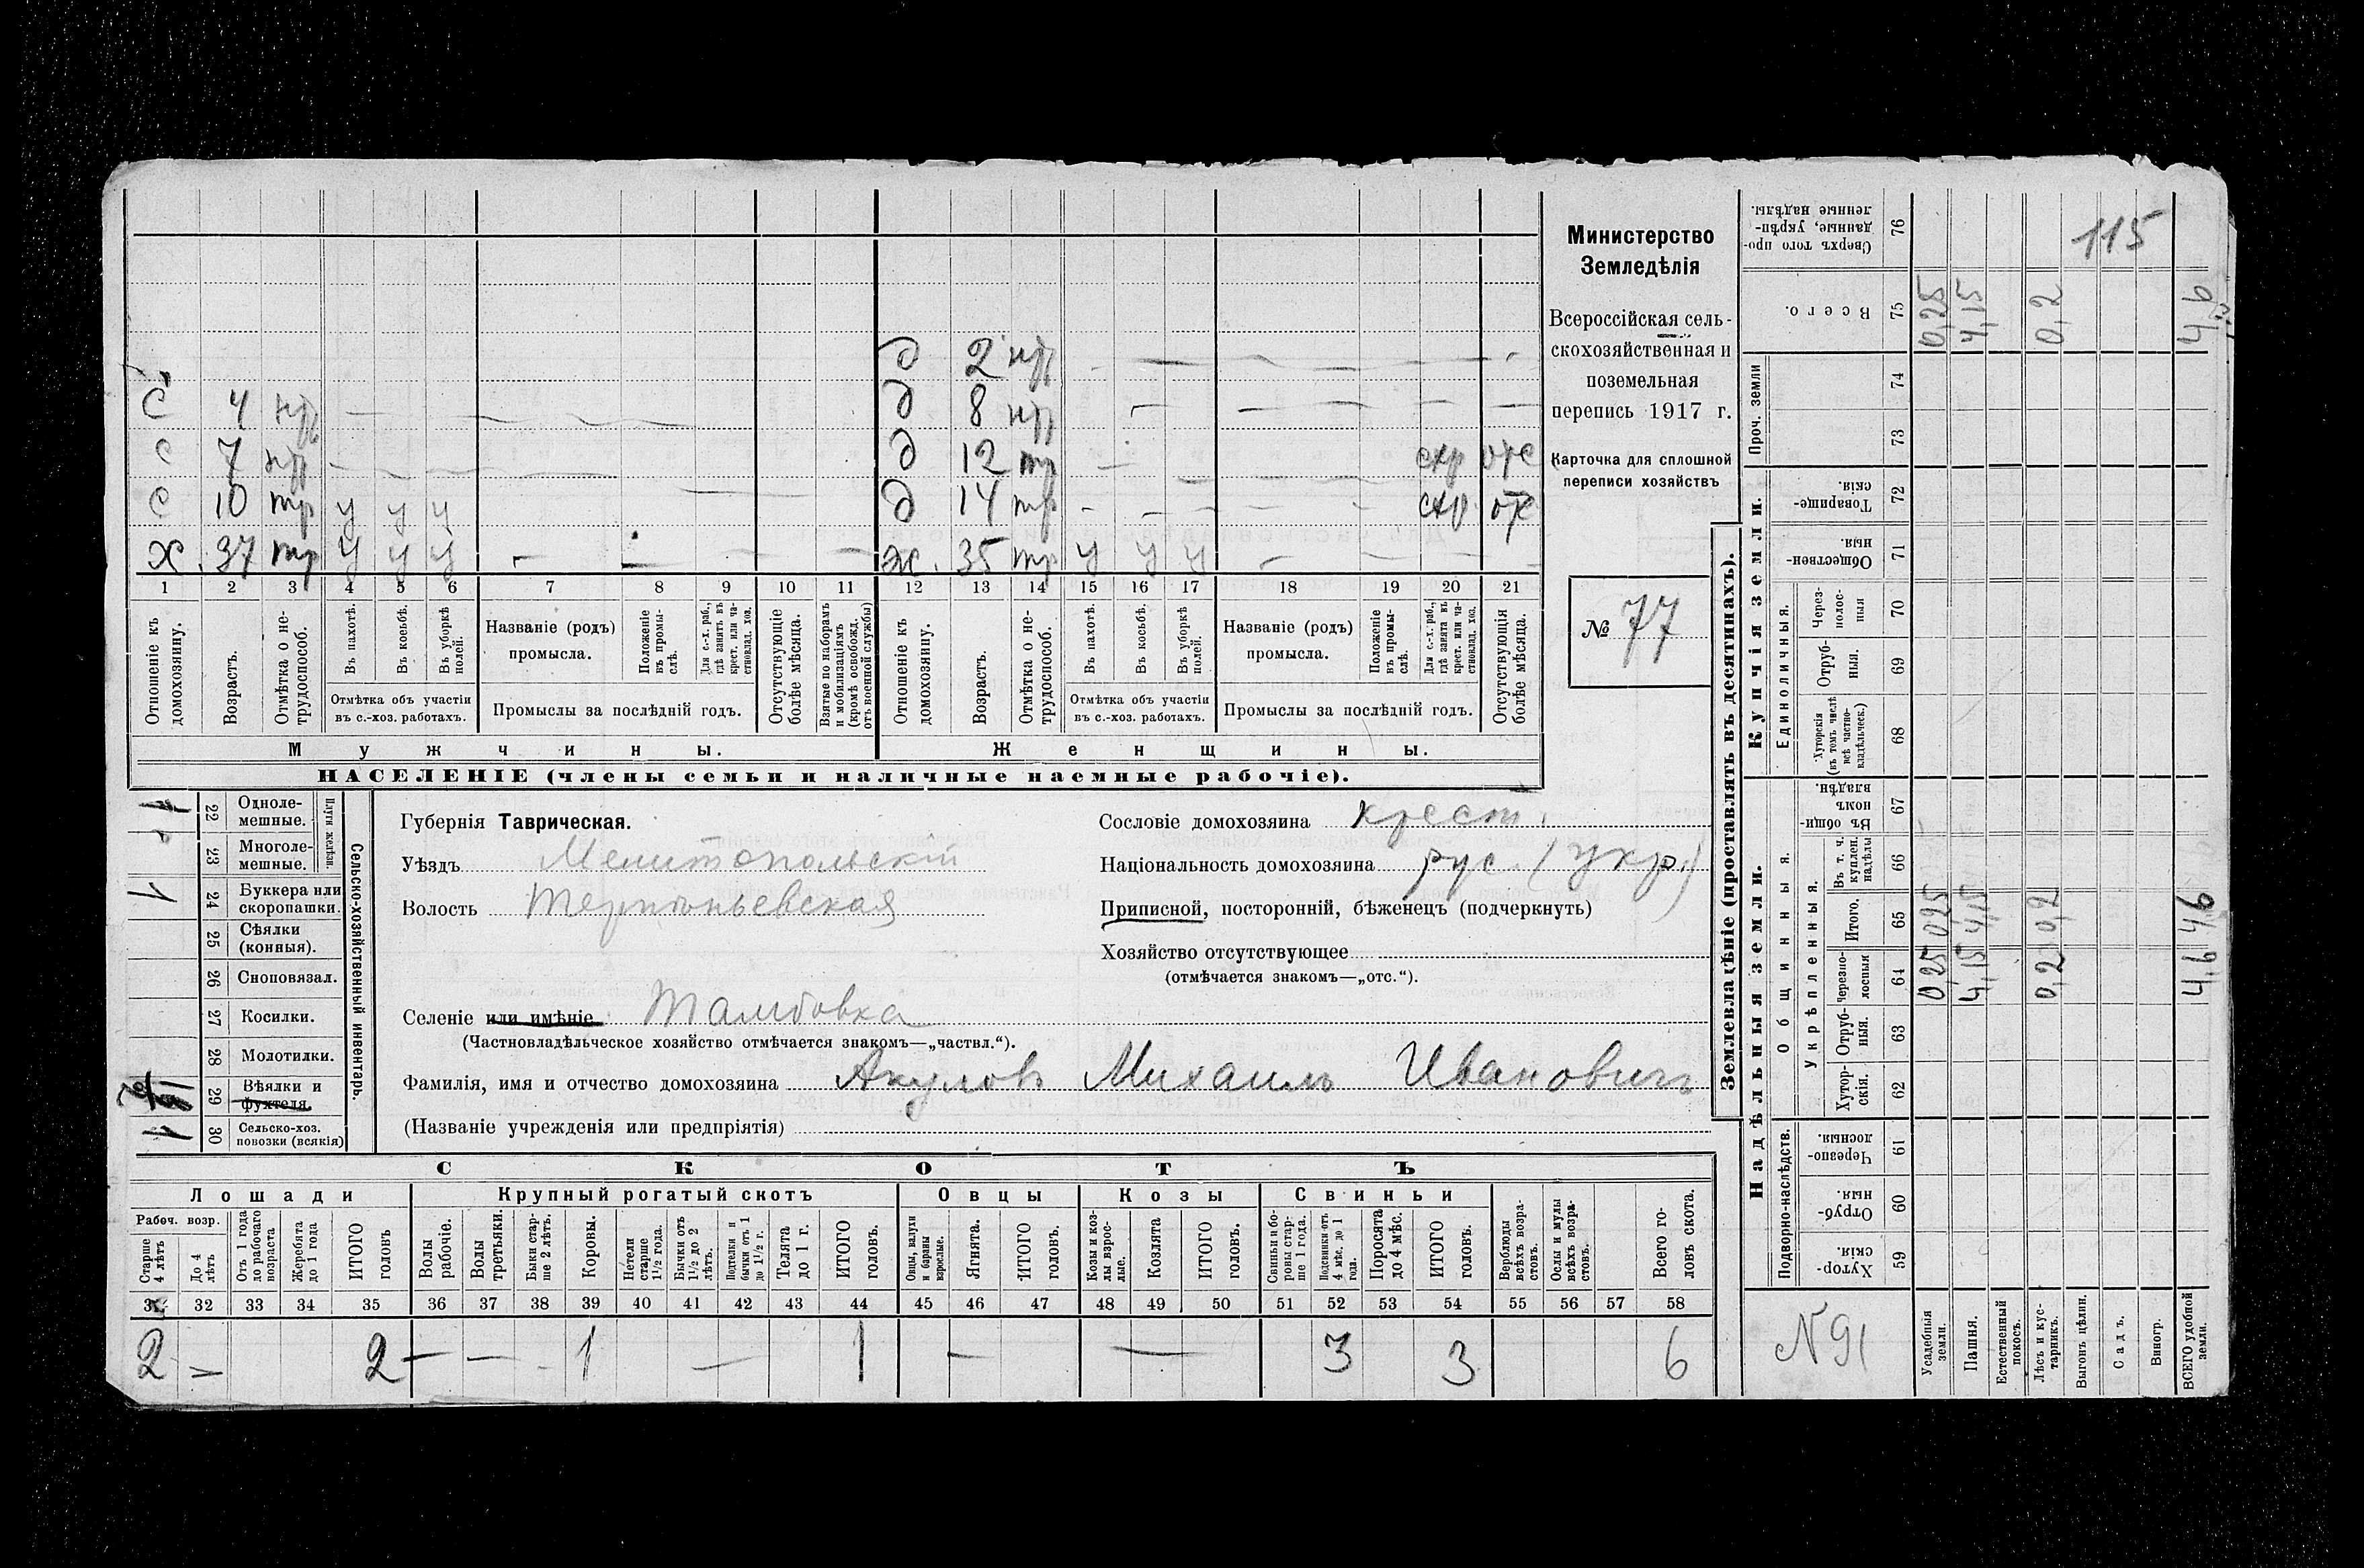 Министерство
Земледѣлія
Всероссійская сель-
скохозяйственная и
поземельная
перепись 1917 г.
Карточка для сплошной
переписи хозяйствъ
№ 77
115
д 2 нтр
с 4 нтр
д 8 нтр
с 7 нтр
д 12 тр схр отс
с 10 тр у у у
д 14 тр схр отс
х 37 тр у у у — —
ж 35 тр у у у —
1 2 3 4 5 6 7 8 9 10 11 12 13 14 15 16 17 18 19 20 21
Отношеніе къ домохозяину.
Возрастъ.
Отмѣтка о не-трудоспособ.
Въ пахотѣ.
Въ косьбѣ.
Въ уборкѣ полей.
Отмѣтка объ участіи
въ с.-хоз. работахъ.
Названіе (родъ)
промысла.
Положеніе въ промы-слѣ.
Для с.-х. раб., гдѣ занятъ въ крест. или ча-стновлад. хоз.
Промыслы за послѣдній годъ.
Отсутствующіе болѣе мѣсяца.
Взятые по наборамъ и мобилизаціямъ (кромѣ освобожд. отъ военной службы)
Отношеніе къ домохозяину.
Возрастъ.
Отмѣтка о не-трудоспособ.
Въ пахотѣ.
Въ косьбѣ.
Въ уборкѣ полей.
Отмѣтка объ участіи
въ с.-хоз. работахъ.
Названіе (родъ)
промысла.
Положеніе въ промы-слѣ.
Для с.-х. раб., гдѣ занята въ крест. или ча-стновлад. хоз.
Промыслы за послѣдній годъ.
Отсутствующія болѣе мѣсяца.
Мужчины.
Женщины.
НАСЕЛЕНІЕ (члены семьи и наличные наемные рабочіе).
Сельско-хозяйственный инвентарь.
Плуги желѣзн.
1 22 Одноле-мешные.
23 Многоле-мешные.
1 24 Буккера или скоропашки.
25 Сѣялки (конныя).
26 Сноповязал.
27 Косилки.
28 Молотилки.
29 Вѣялки и фухтеля.
1 30 Сельско-хоз. повозки (всякія)
Губернія Таврическая.
Уѣздъ Мелитопольскій
Волость Терпѣньевская
Селеніе или имѣніе Тамбовка
(Частновладѣльческое хозяйство отмѣчается знакомъ—„частвл.“).
Фамилія, имя и отчество домохозяина Акуловъ Михаилъ Ивановичъ
(Названіе учрежденія или предпріятія)
Сословіе домохозяина крест.
Національность домохозяина рус. (укр.)
Приписной, посторонній, бѣженецъ (подчеркнуть)
Хозяйство отсутствующее
(отмѣчается знакомъ—„отс.“).
СКОТЪ
Лошади
Крупный рогатый скотъ
Овцы
Козы
Свиньи
Рабоч. возр.
Старше 4 лѣтъ
До 4 лѣтъ
Отъ 1 года до рабочаго возраста
Жеребята до 1 года
ИТОГО головъ
Волы рабочіе.
Волы третьяки.
Быки стар-ше 2 лѣтъ.
Коровы.
Нетели старше 1½ года.
Бычки отъ 1½ до 2 лѣтъ.
Подтелки и бычки отъ 1 до 1½ г.
Телята до 1 г.
ИТОГО головъ.
Овцы, валухи и бараны взрослые.
Ягнята.
ИТОГО головъ.
Козы и коз-лы взрос-лые.
Козлята
ИТОГО головъ.
Свиньи и бо-ровы стар-ше 1 года.
Подсвинки отъ 4 мѣс. до 1 года.
Поросята до 4 мѣс.
ИТОГО головъ.
Верблюды всѣхъ возра-стовъ.
Ослы и мулы всѣхъ возра-стовъ.
Всего го-ловъ скота.
31 32 33 34 35 36 37 38 39 40 41 42 43 44 45 46 47 48 49 50 51 52 53 54 55 56 57 58
2 — 2 — — - 1 — 1 — — 3 3 6
Землевладѣніе (проставлять въ десятинахъ).
Надѣльныя земли.
Купчія земли.
Проч. земли
Подворно-наслѣдств.
Общинныя.
Укрѣпленныя.
Единоличныя.
Хутор-скія. 59
Отруб-ныя. 60
Черезпо-лосныя. 61
Хутор-скія. 62
Отруб-ныя. 63
Черезпо-лосныя 64
Итого. 65
Въ т. ч. куплен. надѣлы 66
Въ общи-номъ владѣн. 67
Хуторскія (въ томъ числѣ всѣ частно-владѣльческ.) 68
Отруб-ныя. 69
Через-полос-ныя 70
Обществен-ныя. 71
Товарище-скія. 72
73
74
Всего. 75
Сверхъ того про-данные, укрѣп-ленные надѣлы. 76
N 91
Усадебныя земли. 0,25 0,25 0,25
Пашня. 4,15 4,15 4,15
Естественный покосъ.
Лѣсъ и кус-тарникъ. 0,2 0,2 0,2
Выгонъ цѣлин.
Садъ.
Виногр.
ВСЕГО удобной земли. 4,6 4,6 4,6